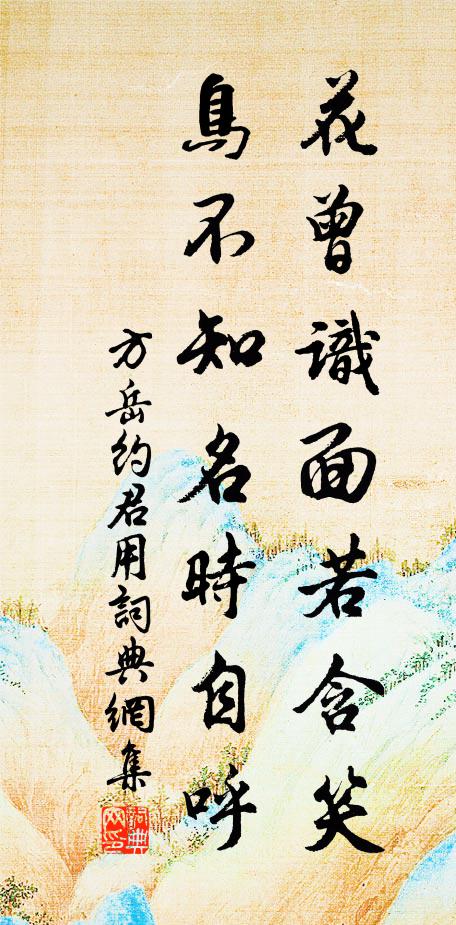 花曾識面若含笑
鳥不知名時自呼
方岳約君用詞典網集
詞典網印